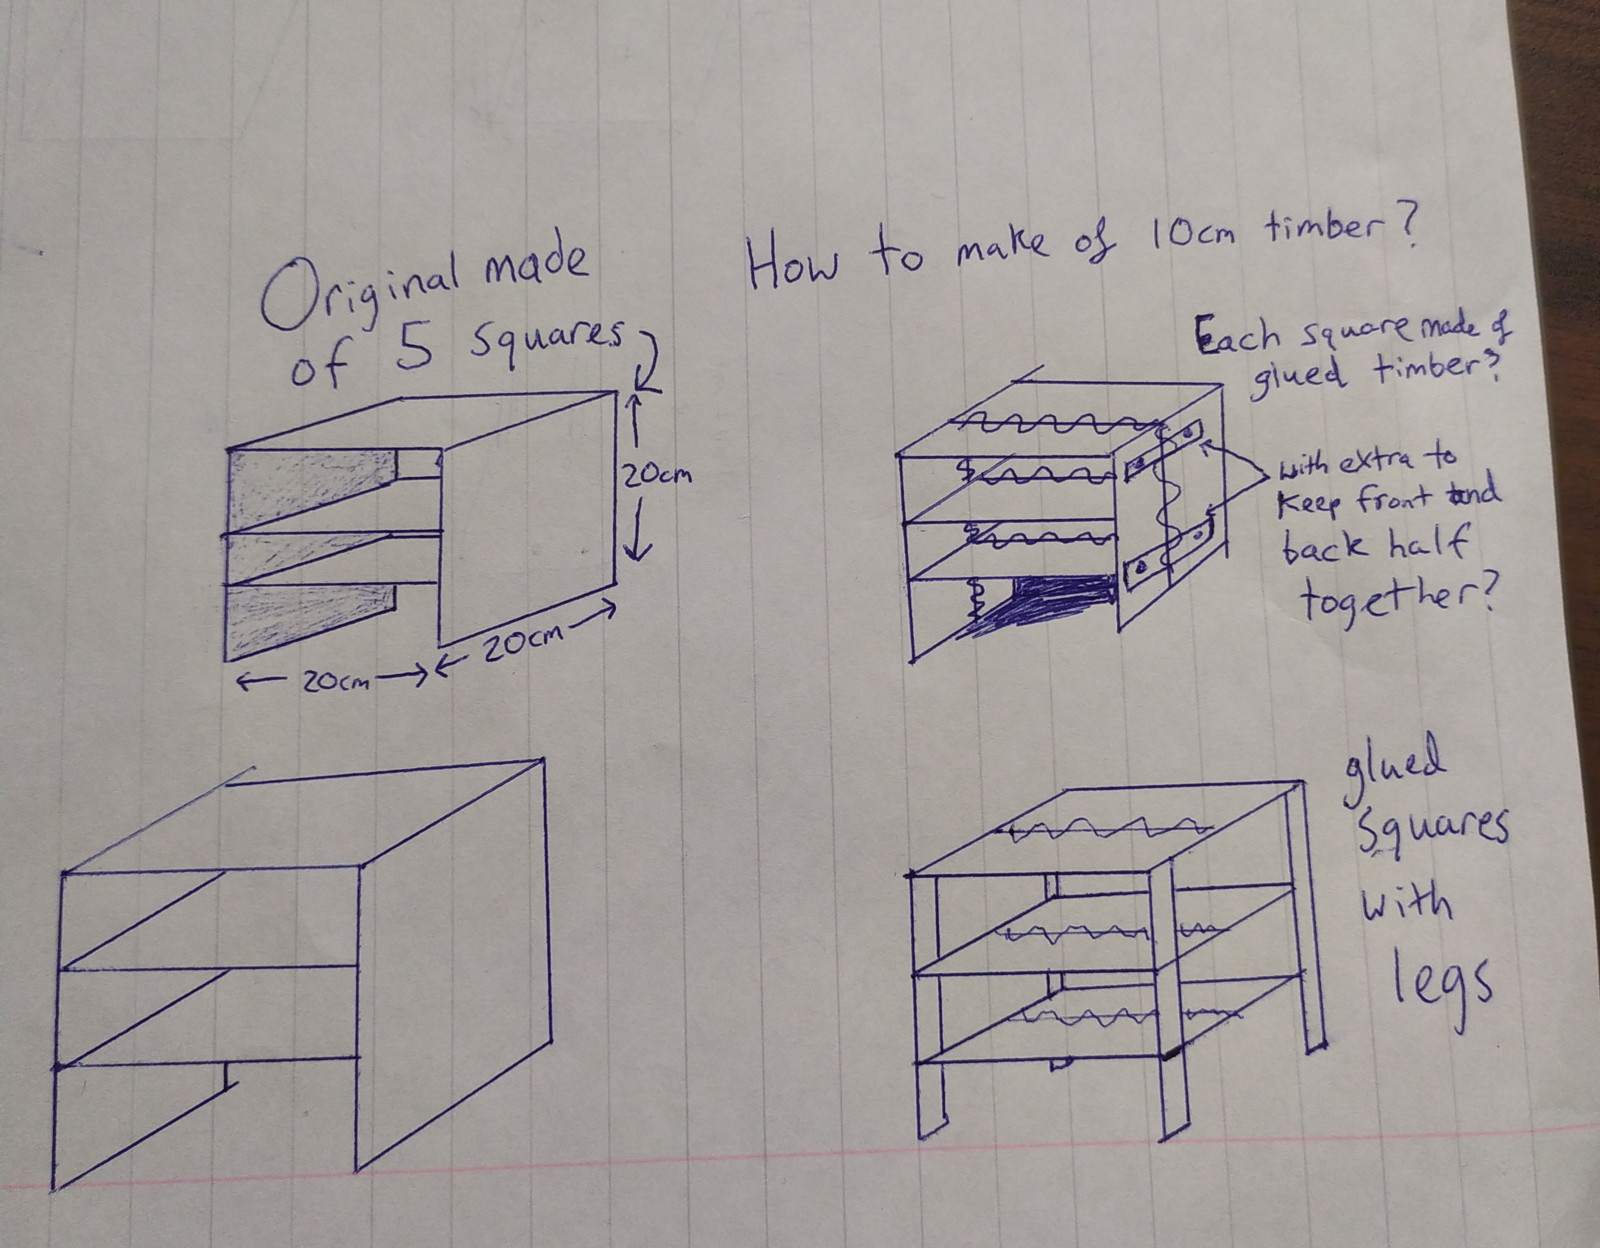 Original made
of 5 squares
20cm
20cm
20cm
How to make of 10cm timber?
Each square made of
glued timber?
with extra to
keep front and
back half
together?
glued
squares
with
legs